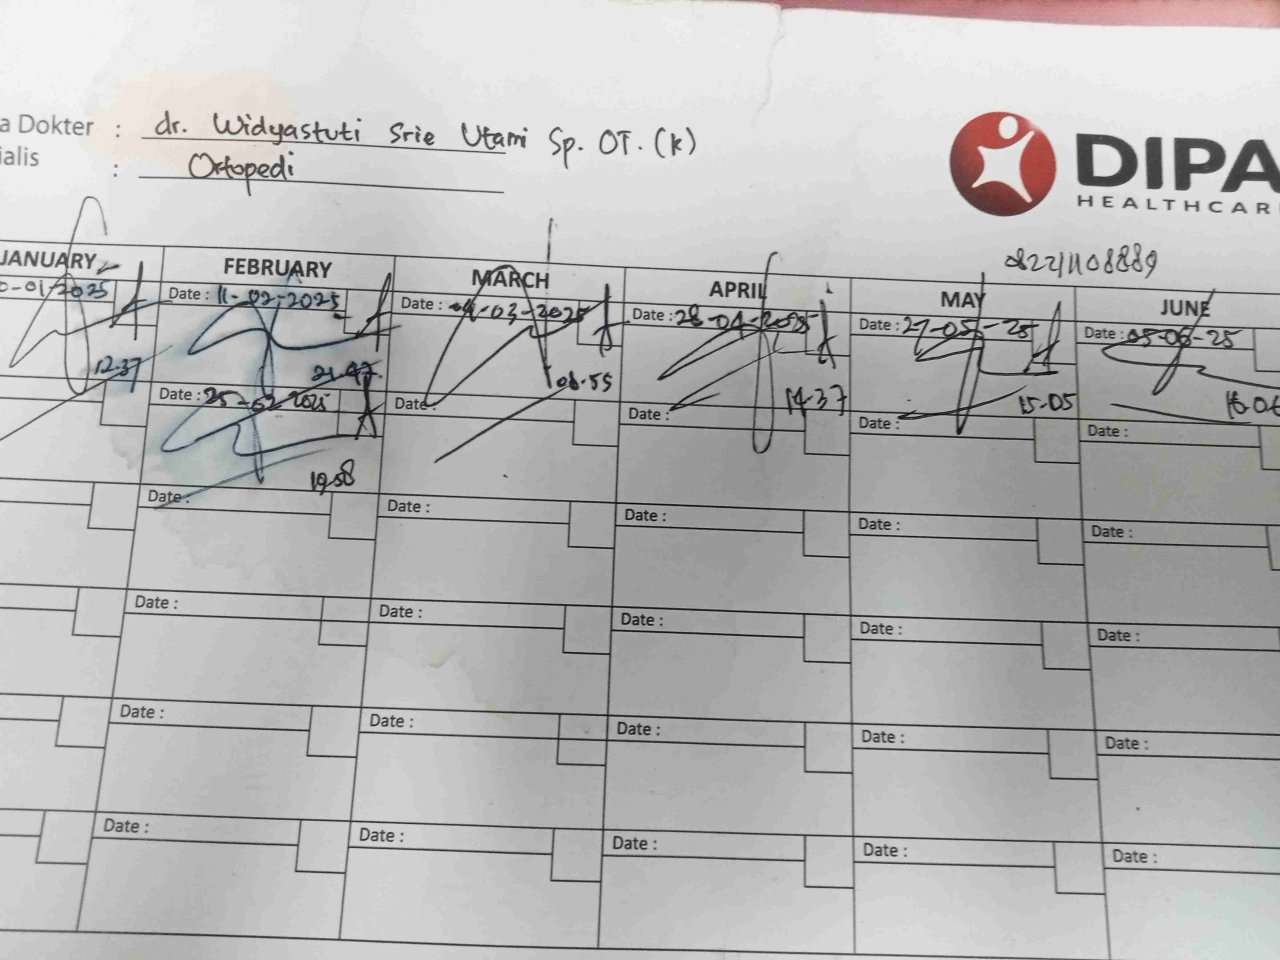 a Dokter : dr. Widyastuti Srie Utami Sp. OT. (k)
ialis : Ortopedi
DIPA
HEALTHCAR
082211108889
JANUARY FEBRUARY MARCH APRIL MAY JUNE
0-01-2025 Date : 11-02-2025 Date : 04-03-2025 Date : 28-04-2025 Date : 27-05-25 Date : 05-06-25
12.37 21.47 06.55 14.37 15.05 16.0
Date : 25-02-2025 Date : Date : Date : Date :
19.58
Date : Date : Date : Date : Date :
Date : Date : Date : Date : Date :
Date : Date : Date : Date : Date :
Date : Date : Date : Date : Date :